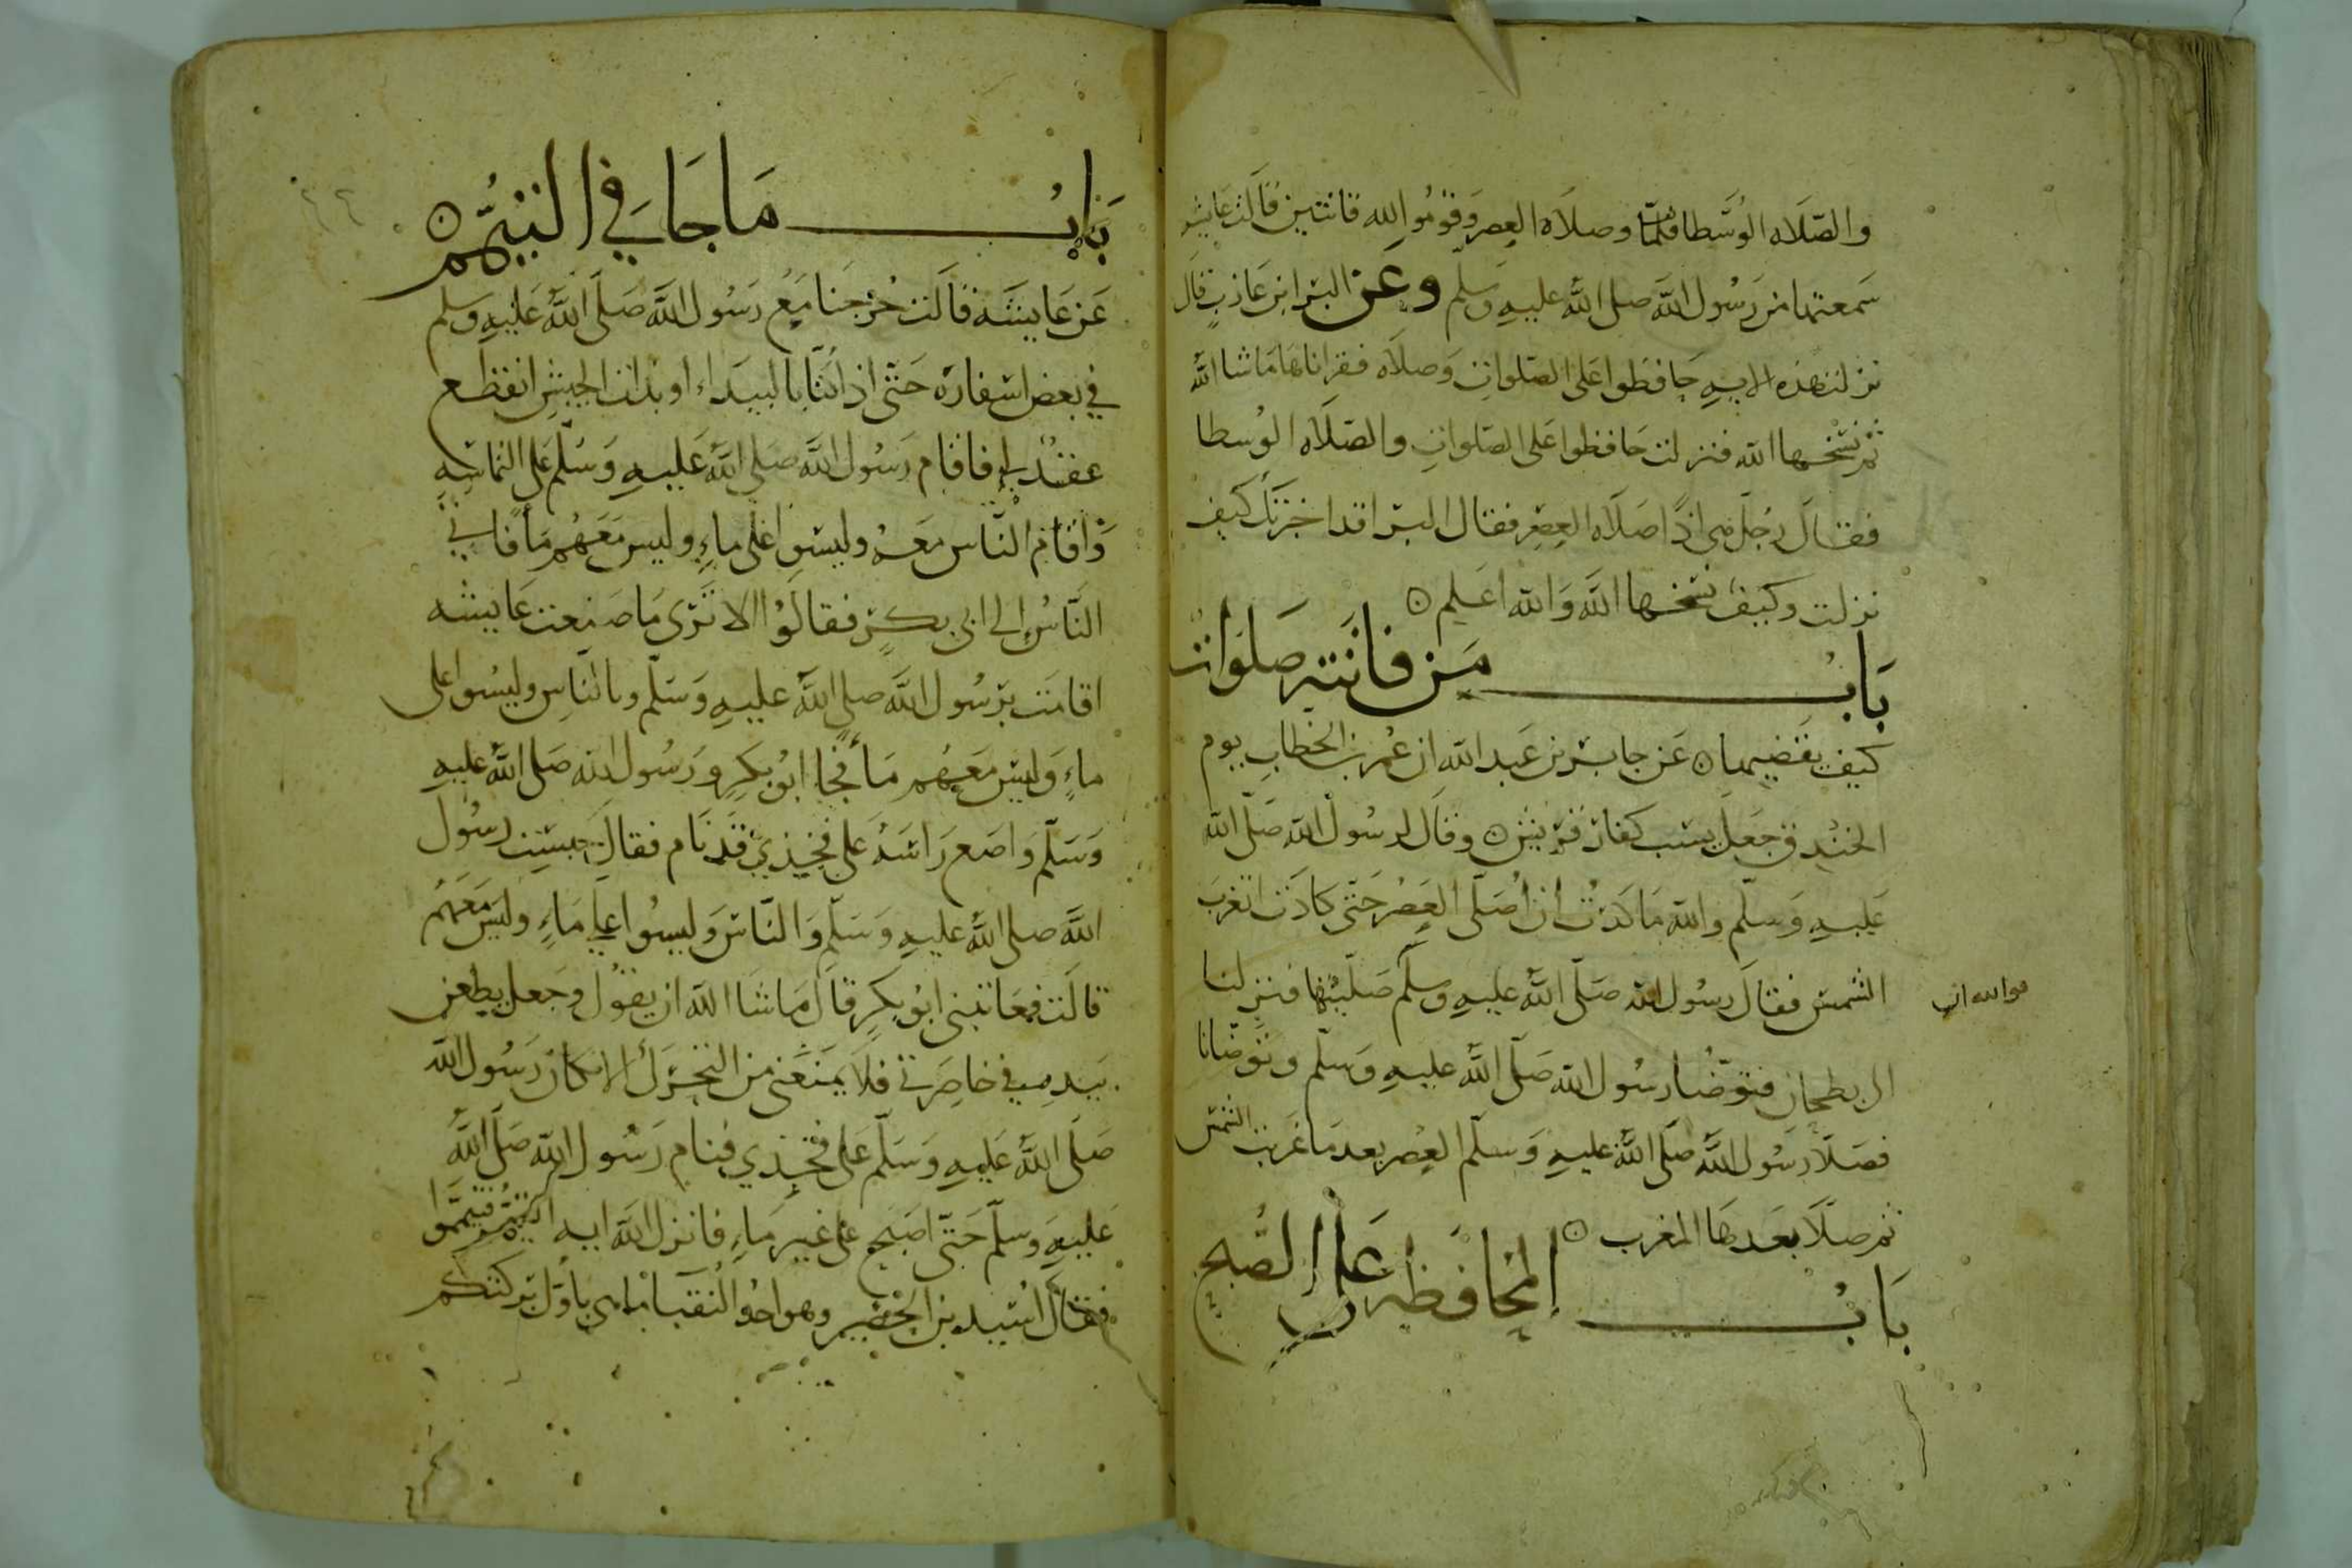 والصّلاه الوُسَّطا وصلاَه العصر وقومُوا لله قانتين قالت عايشه
سَمعتها من رَسُول اللَّه صلى اللَّه عليهِ وَسلّم وعَن البَرا ابن عَازبٍ قال
نزلت هذه الايه حَافظوا عَلى الصّلواتِ وَصلاَه فقراناهَا مَا شا اللَّه
ثم نسَخها اللّه فنزلت حَافظوا عَلى الصّلواتِ والصّلاَه الوُسطا
فقالَ رجل هي اذًا صَلاَه العصْرِ فقال البَرا قد اخبرَتك كَيف
نزلت وكيف نسَخها اللَّه وَاللّه اعَلم ه
بَابُ مَن فاتَته صَلَوَاتٌ
كيف يقضِيها ه عَن جابر بن عَبد اللّه ان عُمر بن الخطابِ يوم
الخندق جَعل يسَب كفار قريش ه وقال لرسُول اللّه صَلّى اللّه
عَليهِ وَسَلّم واللّه مَا كدتُ ان اُصَلّى العَصْر حَتّى كادَت تغربَ
الشمس فقالَ رسُول اللّه صَلّى اللَّه عليهِ وَسلّم صَلّيتُها فنزلنا
فوالله ان
الى بطحان فتوضّا رسُول اللّه صَلّى اللَّه عليهِ وَسلّم وتوَضّانا
فصَلّا رَسُول اللَّه صَلّى اللَّه عليهِ وَسَلّم العصر بعد مَا غَربت الشمسُ
ثم صَلّا بعَدهَا المغرب ه
بَابُ المحَافظه عَلَى الصُّبح
بَابُ مَا جَا في التيَمُّم ه
عَن عَايشَه قالت خَرجنا مَعَ رَسُول اللَّه صَلّى اللَّه عَليهِ وسَلم
في بعض اسْفاره حَتّى اذا كنّا بالبيَداء او بذات الجيش انقطع
عقدٌ لي فاقام رَسُول اللَّه صَلى اللَّه عَليهِ وَسَلّم عَلى التماسِهِ
وَاقامَ النَّاس مَعَهُ وليسَوا عَلى ماءٍ وليس مَعَهُم مَأ فاتى
النَّاسُ الى ابى بكرٍ فقالُوا الا تَرى مَا صَنعت عَايشه
اقامَت برَسُول اللَّه صلى اللَّه عليهِ وَسَلّم وبالنّاسِ وليسُوا على
ماءٍ وَليسَ مَعَهُم مَأ فجا ابوُ بكرٍ ورَسُول اللّه صَلى اللَّه عليهِ
وَسَلّم وَاضع رَاسَهُ عَلى فخذي قد نَام فقال حبستِ رسُول
اللَّه صلى اللَّه عليهِ وَسَلّم وَالنّاس وَليسُوا على مَاءٍ وليسَ مَعَهُم
قالَت فعَاتبنى ابوُ بكرٍ قالَ مَا شا اللّه ان يقوُل وجَعل يطعن
بيدهِ في خاصِرتي فلا يمنَعَني من التحَرّك الا مكان رَسُول اللّه
صَلّى اللَّه عَليهِ وَسَلّم عَلى فخذي فنام رَسُول اللّه صَلّى اللَّه
عَليهِ وَسلّم حَتّى اصبَح على غير مَاءٍ فانزل اللَّه ايه التيمّم فتيمّموا
فقالَ اسُيد بن الحُضيرِ وهو احدُ النُقبا ما هى باوّل بَركتكم